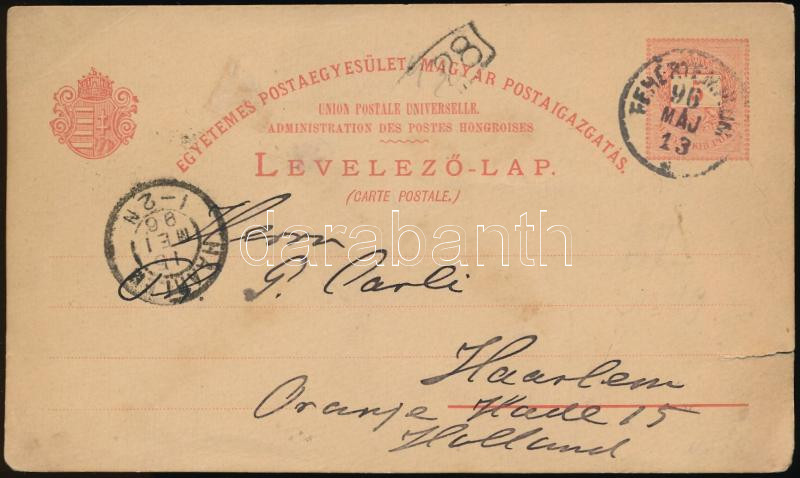 EGYETEMES POSTAEGYESÜLET. MAGYAR POSTAIGAZGATÁS.
UNION POSTALE UNIVERSELLE.
ADMINISTRATION DES POSTES HONGROISES
LEVELEZŐ-LAP.
(CARTE POSTALE.)
128
FEHÉRTEMPLOM
96
MÁJ
13
HAARLEM
MEI
96
1-2N
Herrn
G. Carli
Haarlem
Oranje Kade 15
Holland
darabanth